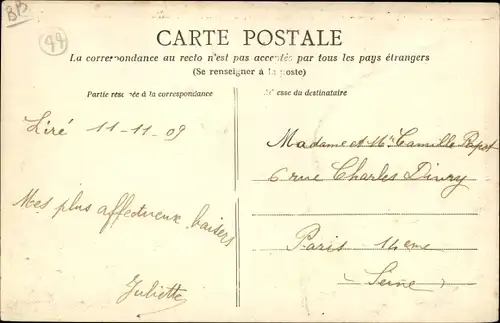 BP
44
CARTE POSTALE
La correspondance au recto n'est pas acceptée par tous les pays étrangers
(Se renseigner à la poste)
Partie réservée à la correspondance
Adresse du destinataire
Liré 11-11-09
Mes plus affectueux baisers
Juliette
Madame et Mr Camille
6 rue Charles Divry
Paris 14eme
Seine